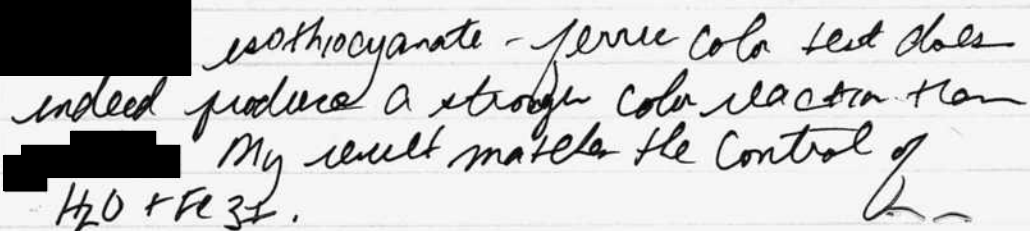 isothiocyanate - ferric color test does
indeed produce a stronger color reaction than
My result matches the control of
H2O + Fe 3+.